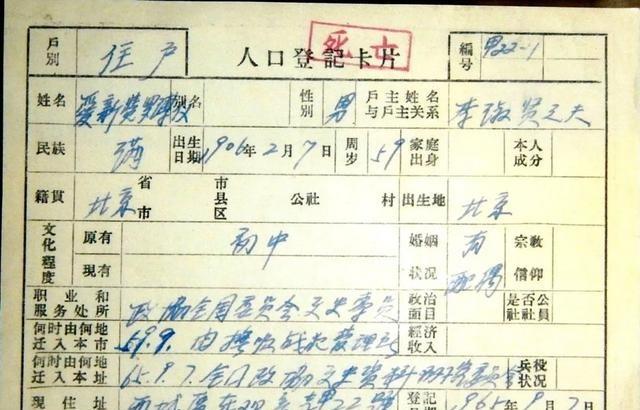 死亡
人口登記卡片
戶別 住户 編号 男22-1
姓名 愛新覺羅溥儀 別名 性別 男 戶主姓名与戶主关系 李淑贤之夫
民族 满 出生日期 1906年2月7日 周岁 59 家庭出身 本人成分
籍貫 北京 省市 市县区 公社 村 出生地 北京
文化程度 原有 初中 婚姻状况 有配偶 宗教信仰
現有
职业和服务处所 政协全国委员会文史专员 政治面目 是否公社社員
何时由何地迁入本市 59.9. 由抚顺战犯管理所 經济收入
何时由何地迁入本址 65.9.7.全国政协文史资料研究委员会 兵役状况
現住址 西城 登記 1965 9月7日